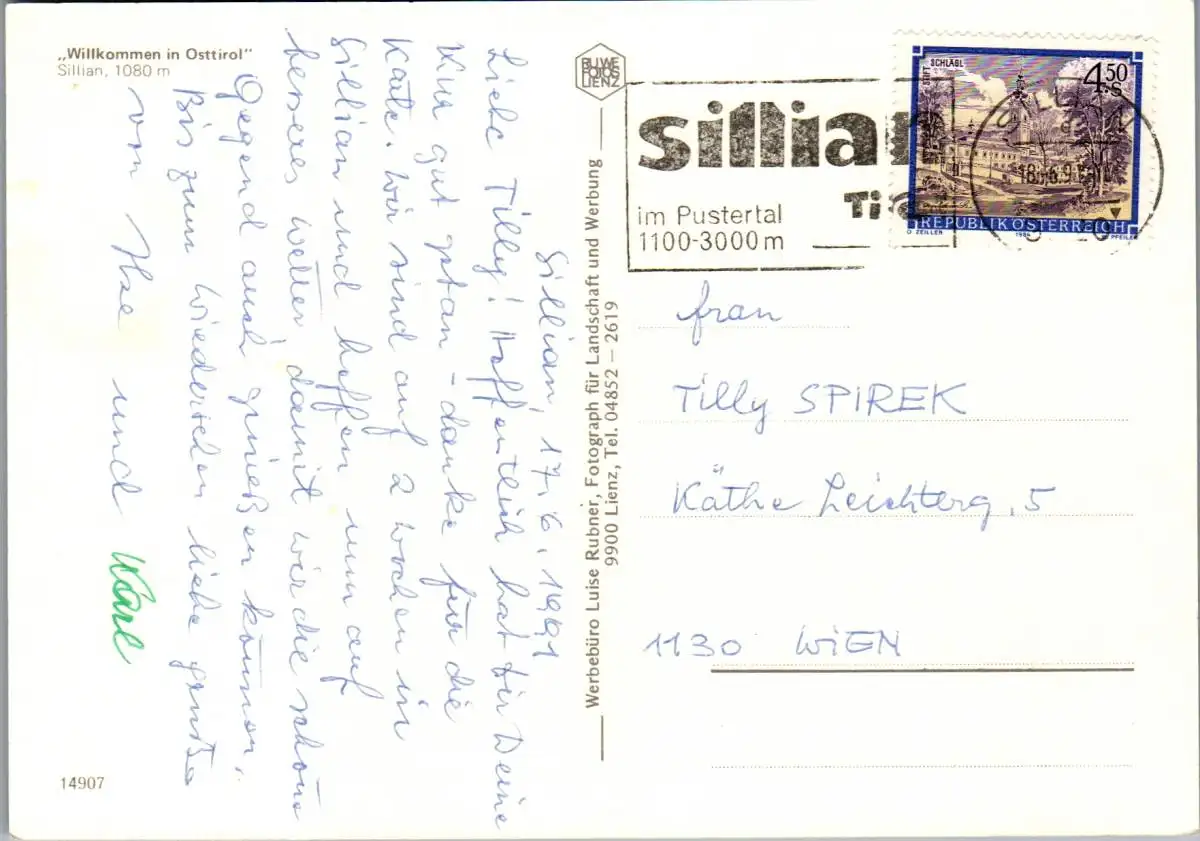 „Willkommen in Osttirol"
Sillian, 1080 m
Sillian, 17.6.1991
Liebe Tilly! Hoffentlich hat dir Deine
Kur gut getan - danke für die
Karte. Wir sind auf 2 Wochen in
Sillian und hoffen nun auf
besseres Wetter, damit wir die schöne
Gegend auch genießen können.
Bis zum Wiedersehen liebe Grüße
von Ilse und Karl
14907
BUWE
FOTOS
LIENZ
Werbebüro Luise Rubner, Fotograph für Landschaft und Werbung
9900 Lienz, Tel. 04852 – 2619
sillian
im Pustertal
1100-3000 m
STIFT SCHLÄGL
4.50
S
REPUBLIK ÖSTERREICH
O ZEILLER 1984 PFEILER
Frau
Tilly SPIREK
Käthe Leichterg. 5
1130 WIEN